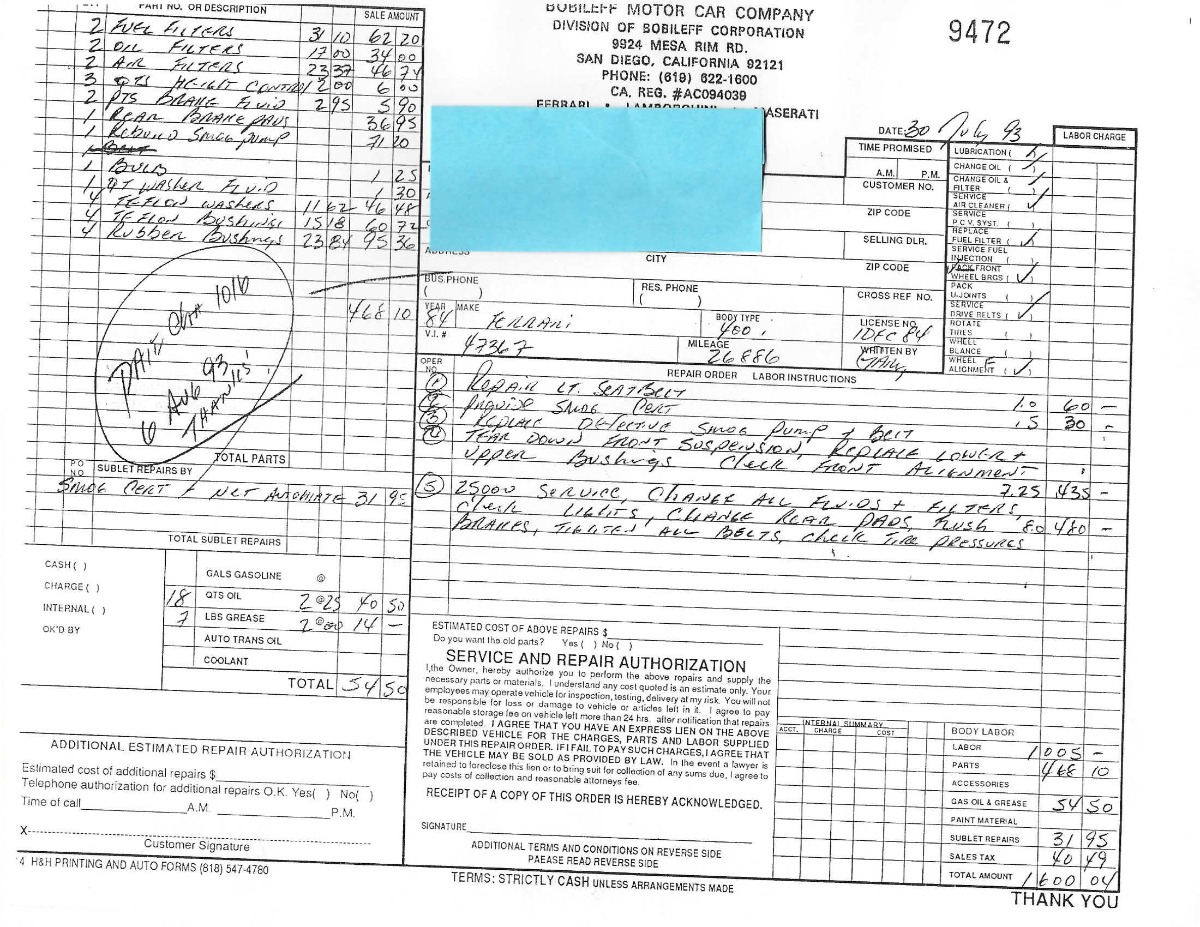 PART NO. OR DESCRIPTION SALE AMOUNT
2 FUEL FILTERS 31 10 62 20
2 OIL FILTERS 17 00 34 00
2 AIR FILTERS 23 37 46 74
3 QTS HEIGHT CONTROL 2 00 6 00
2 PTS BRAKE FLUID 2 95 5 90
1 REAR BRAKE PADS 36 95
1 REBUILD SMOG PUMP 71 20
1 BELT
1 BULB 1 25
1 QT WASHER FLUID 1 30
4 TEFLON WASHERS 11 62 46 48
4 TEFLON BUSHINGS 15 18 60 72
4 RUBBER BUSHINGS 23 84 95 36
468 10
PAID CK# 1016
6 AUG 93
THANKS!
TOTAL PARTS
PO NO SUBLET REPAIRS BY
SMOG CERT + 31 95
TOTAL SUBLET REPAIRS
CASH ( )
CHARGE ( )
INTERNAL ( )
OK'D BY
GALS GASOLINE @
18 QTS OIL 2 @ 25 40 50
7 LBS GREASE 2 @ 00 14 –
AUTO TRANS OIL
COOLANT
TOTAL 54 50
ADDITIONAL ESTIMATED REPAIR AUTHORIZATION
Estimated cost of additional repairs $
Telephone authorization for additional repairs O.K. Yes( ) No( )
Time of call A.M. P.M.
X
Customer Signature
4 H&H PRINTING AND AUTO FORMS (818) 547-4780
BOBILEFF MOTOR CAR COMPANY
DIVISION OF BOBILEFF CORPORATION
9924 MESA RIM RD.
SAN DIEGO, CALIFORNIA 92121
PHONE: (619) 622-1600
CA. REG. #AC094039
FERRARI • LAMBORGHINI MASERATI
9472
DATE: 30 July 93
TIME PROMISED
A.M. P.M.
CUSTOMER NO.
ZIP CODE
SELLING DLR.
ADDRESS CITY ZIP CODE
BUS. PHONE ( ) RES. PHONE ( ) CROSS REF NO.
YEAR 84 MAKE FERRARI BODY TYPE 400i LICENSE NO. 1DEC84
V.I. # 47367 MILEAGE 26886 WRITTEN BY
LABOR CHARGE
LUBRICATION (
CHANGE OIL (
CHANGE OIL & FILTER (
SERVICE AIR CLEANER (
SERVICE P.C.V. SYST. (
REPLACE FUEL FILTER (
SERVICE FUEL INJECTION (
PACK FRONT WHEEL BRGS (
PACK U-JOINTS (
SERVICE DRIVE BELTS (
ROTATE TIRES (
WHEEL BLANCE (
WHEEL ALIGNMENT (
OPER NO. REPAIR ORDER LABOR INSTRUCTIONS
1 REPAIR LT. SEATBELT 1.0 60 –
2 PROVIDE SMOG CERT .5 30 –
3 REPLACE DEFECTIVE SMOG PUMP + BELT
4 TEAR DOWN FRONT SUSPENSION, REPLACE LOWER +
UPPER BUSHINGS CHECK FRONT ALIGNMENT 7.25 435 –
5 25000 SERVICE, CHANGE ALL FLUIDS + FILTERS,
CHECK LIGHTS, CHANGE REAR PADS, FLUSH 8.0 480 –
BRAKES, TIGHTEN ALL BELTS, CHECK TIRE PRESSURES
ESTIMATED COST OF ABOVE REPAIRS $
Do you want the old parts? Yes ( ) No ( )
SERVICE AND REPAIR AUTHORIZATION
I,the Owner, hereby authorize you to perform the above repairs and supply the
necessary parts or materials. I understand any cost quoted is an estimate only. Your
employees may operate vehicle for inspection, testing, delivery at my risk. You will not
be responsible for loss or damage to vehicle or articles left in it. I agree to pay
reasonable storage fee on vehicle left more than 24 hrs. after notification that repairs
are completed. I AGREE THAT YOU HAVE AN EXPRESS LIEN ON THE ABOVE
DESCRIBED VEHICLE FOR THE CHARGES, PARTS AND LABOR SUPPLIED
UNDER THIS REPAIR ORDER. IF I FAIL TO PAY SUCH CHARGES, I AGREE THAT
THE VEHICLE MAY BE SOLD AS PROVIDED BY LAW. In the event a lawyer is
retained to foreclose this lien or to bring suit for collection of any sums due, I agree to
pay costs of collection and reasonable attorneys fee.
RECEIPT OF A COPY OF THIS ORDER IS HEREBY ACKNOWLEDGED.
SIGNATURE
ADDITIONAL TERMS AND CONDITIONS ON REVERSE SIDE
PAEASE READ REVERSE SIDE
TERMS: STRICTLY CASH UNLESS ARRANGEMENTS MADE
INTERNAL SUMMARY
ACCT. CHARGE COST
BODY LABOR
LABOR 1005 –
PARTS 468 10
ACCESSORIES
GAS OIL & GREASE 54 50
PAINT MATERIAL
SUBLET REPAIRS 31 95
SALES TAX 40 49
TOTAL AMOUNT 1600 04
THANK YOU